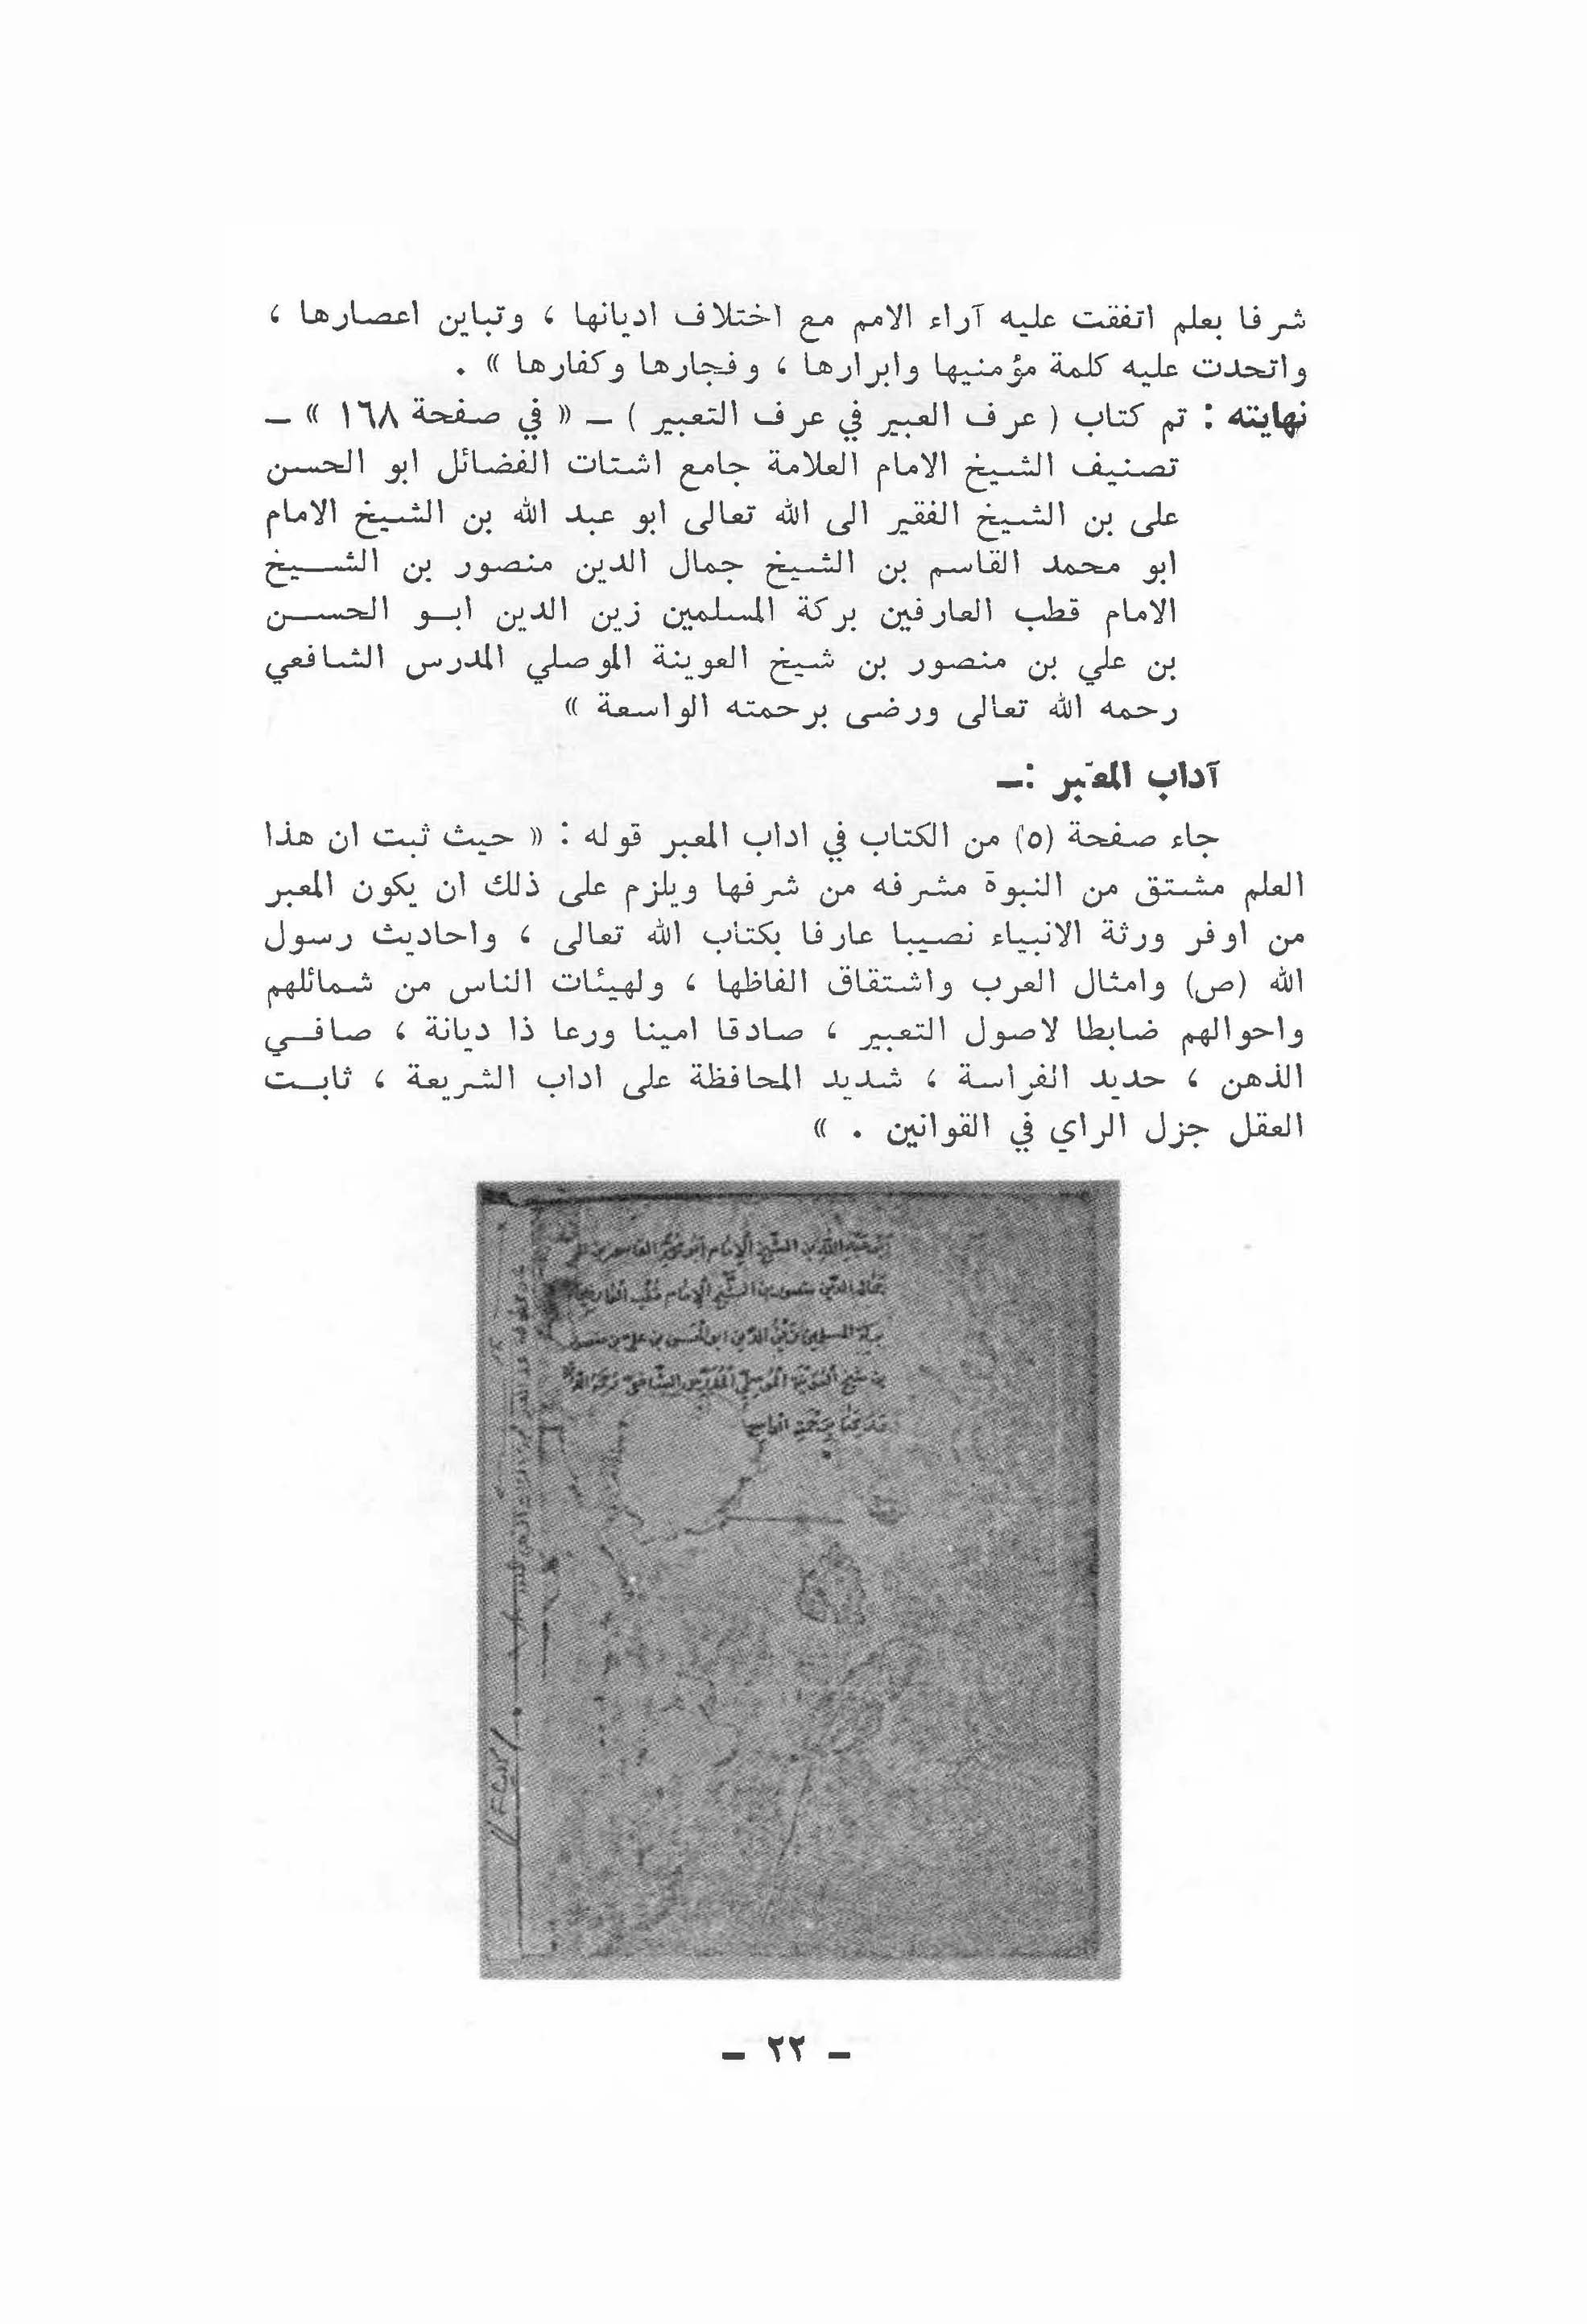 شرفا بعلم اتفقت عليه آراء الامم مع اختلاف اديانها ، وتباين اعصارها ،
واتحدت عليه كلمة مؤمنيها وابرارها ، وفجارها وكفارها » .
نهايته : تم كتاب ( عرف العبير في عرف التعبير ) ــ « في صفحة ١٦٨ » ــ
تصنيف الشيخ الامام العلامة جامع اشتات الفضائل ابو الحسن
على بن الشيخ الفقير الى الله تعالى ابو عبد الله بن الشيخ الامام
ابو محمد القاسم بن الشيخ جمال الدين منصور بن الشــيخ
الامام قطب العارفين بركة المسلمين زين الدين ابــو الحســن
بن علي بن منصور بن شيخ العوينة الموصلي المدرس الشافعي
رحمه الله تعالى ورضى برحمته الواسعة »
آداب المعّبر :ــ
جاء صفحة (٥) من الكتاب في اداب المعبر قوله : « حيث ثبت ان هذا
العلم مشتق من النبوة مشرفه من شرفها ويلزم على ذلك ان يكون المعبر
من اوفر ورثة الانبياء نصيبا عارفا بكتاب الله تعالى ، واحاديث رسول
الله (ص) وامثال العرب واشتقاق الفاظها ، ولهيئات الناس من شمائلهم
واحوالهم ضابطا لاصول التعبير ، صادقا امينا ورعا ذا ديانة ، صافــي
الذهن ، حديد الفراسة ، شديد المحافظة على اداب الشريعة ، ثابــت
العقل جزل الراي في القوانين . »
بن الشيخ الإمام أبو محمد القاسم بن
جمال الدين منصور بن الشيخ الإمام قطب العارفين
بركة المسلمين زين الدين ابو الحسن بن علي بن منصور
بن شيخ العوينة الموصلي المدرس الشافعي رحمه الله
ــ ٢٢ ــ